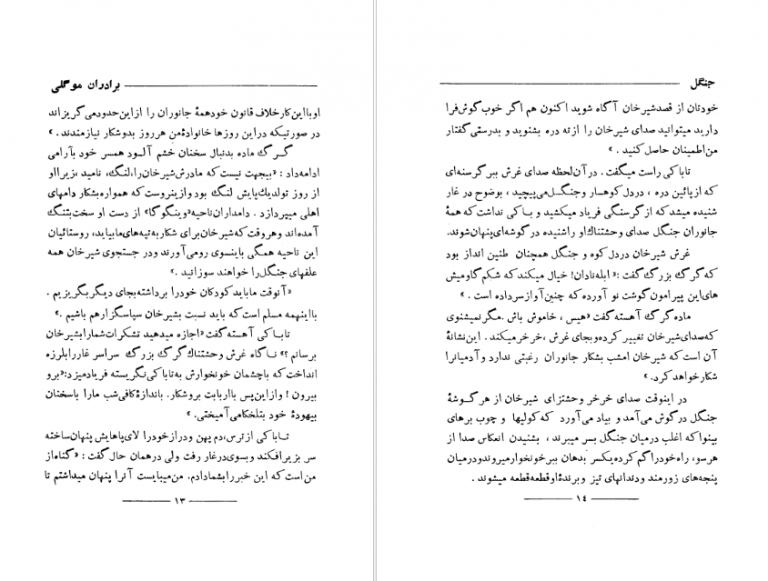 برادران موگلی
او با این کار خلاف قانون خود همهٔ جانوران را از این حدود می‌گریزاند
در صورتیکه در این روزها خانوادهٔ من هر روز بدو شکار نیازمندند. »
گرگ ماده بدنبال سخنان خشم آلود همسر خود بآرامی
ادامه داد : «بیجهت نیست که مادرش شیرخان را، لنگ، نامید، زیرا او
از روز تولد یک پایش لنگ بود و از ینروست که همواره بشکار دامهای
اهلی میپردازد . دامداران ناحیه «وینگوگا» از دست او سخت بتنگ
آمده‌اند و هر وقت که شیرخان برای شکار به تپه‌های ما بیاید، روستائیان
این ناحیه همگی باینسوی رو می‌آورند و در جستجوی شیرخان همه
علفهای جنگل را خواهند سوزانید . »
«آنوقت ما باید کودکان خود را برداشته بجای دیگر بگریزیم .
با اینهمه مسلم است که باید نسبت بشیرخان سپاسگزار هم باشیم . »
تاباکی آهسته گفت «اجازه میدهید تشکرات شما را بشیرخان
برسانم ؟» ناگاه غرش وحشتناک گرگ بزرگ سراسر غار را بلرزه
انداخت که با چشمان خونخوارش به تاباکی نگریسته فریاد میزد: «برو
بیرون ! و از این پس با اربابت برو شکار. باندازهٔ کافی شب ما را با سخنان
بیهودهٔ خود بتلخکامی آمیختی. »
تاباکی از ترس، دم پهن و دراز خود را لای پاهایش پنهان ساخته
سر بزیر افکند و بسوی در غار رفت ولی در همان حال گفت : «گناه از
من است که این خبر را بشما دادم. من میبایست آنرا پنهان میداشتم تا
۱۳
جنگل
خودتان از قصد شیرخان آگاه شوید اکنون هم اگر خوب گوش فرا
دارید میتوانید صدای شیرخان را از ته دره بشنوید و بدرستی گفتار
من اطمینان حاصل کنید . »
تاباکی راست میگفت. در آن لحظه صدای غرش ببر گرسنه‌ای
که از پائین دره ، در دل کوهسار و جنگل می‌پیچید ، بوضوح در غار
شنیده میشد که از گرسنگی فریاد میکشید و باکی نداشت که همهٔ
جانوران جنگل صدای وحشتناک او را شنیده در گوشه‌ای پنهان شوند.
غرش شیرخان در دل کوه و جنگل همچنان طنین انداز بود
که گرگ بزرگ گفت: «ابله نادان! خیال میکند که شکم گاومیش
های این پیرامون گوشت نو آورده که چنین آواز سر داده است . »
ماده گرگ آهسته گفت «هیس ، خاموش باش . مگر نمیشنوی
که صدای شیرخان تغییر کرده و بجای غرش ، خرخر میکند . این نشانهٔ
آن است که شیرخان امشب بشکار جانوران رغبتی ندارد و آدمیان را
شکار خواهد کرد. »
در اینوقت صدای خرخر وحشتزای شیرخان از هر گوشهٔ
جنگل در گوش می‌آمد و بیاد می‌آورد که کولیها و چوب برهای
بینوا که اغلب در میان جنگل بسر میبرند ، بشنیدن انعکاس صدا از
هر سو، راه خود را گم کرده یکسر بدهان ببر خونخوار میروند و در میان
پنجه‌های زورمند و دندانهای تیز و برندهٔ او قطعه قطعه میشوند .
۱٤